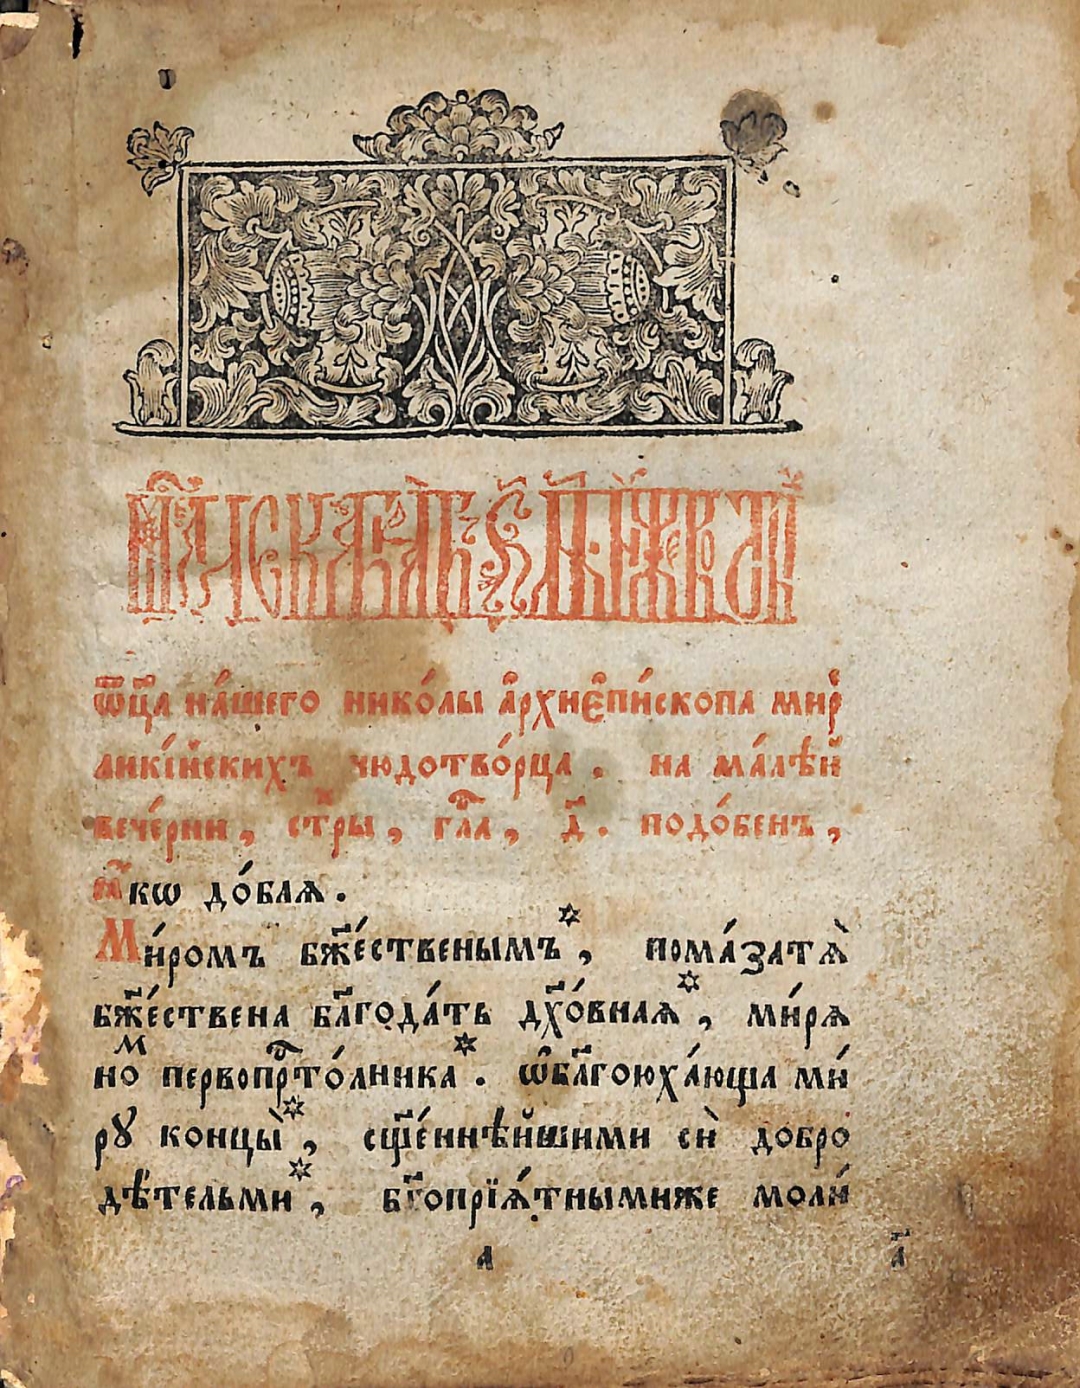 мц҃а декабрѧ, ѕ҃, дн҃ь. иже во ст҃ы́хъ
ѿц҃а на́шего нико́лы а҆рхиє҆пи́скопа мир
ликі́йскихъ чюдотво́рца. на ма́лѣй
вече́рни, стⷯры, гла́, д҃. подо́бенъ,
ꙗ҆́кѡ до́блѧ.
Ми́ромъ бж҃е́ственымъ*, пома́затѧ̀
бж҃е́ствена блг҃ода́ть дх҃о́внаѧ*, ми́рѧ
ноⷨ первопрⷭ҇то́лника*. ѡ҆бл҃гоюха́юща ми́
рꙋ концы̀*, сщ҃е́ннѣйшими сѝ добро
дѣ́тельми*, бг҃опрїѧ́тнымиже моли́
а
а҃